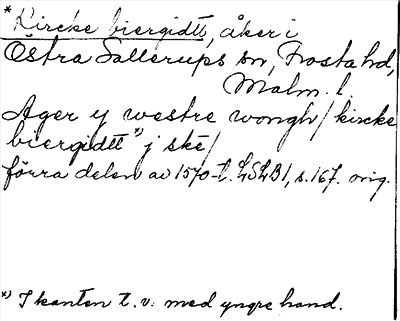 *Kircke biergidtt, åker i
Östra Sallerups sn, Frosta hd,
Malm. l.
Ager y westre wongh/kircke
biergidtt*) j ske/
förra delen av 1570-t. LSLB1, s.167. orig.
*) I kanten t. v. med yngre hand.